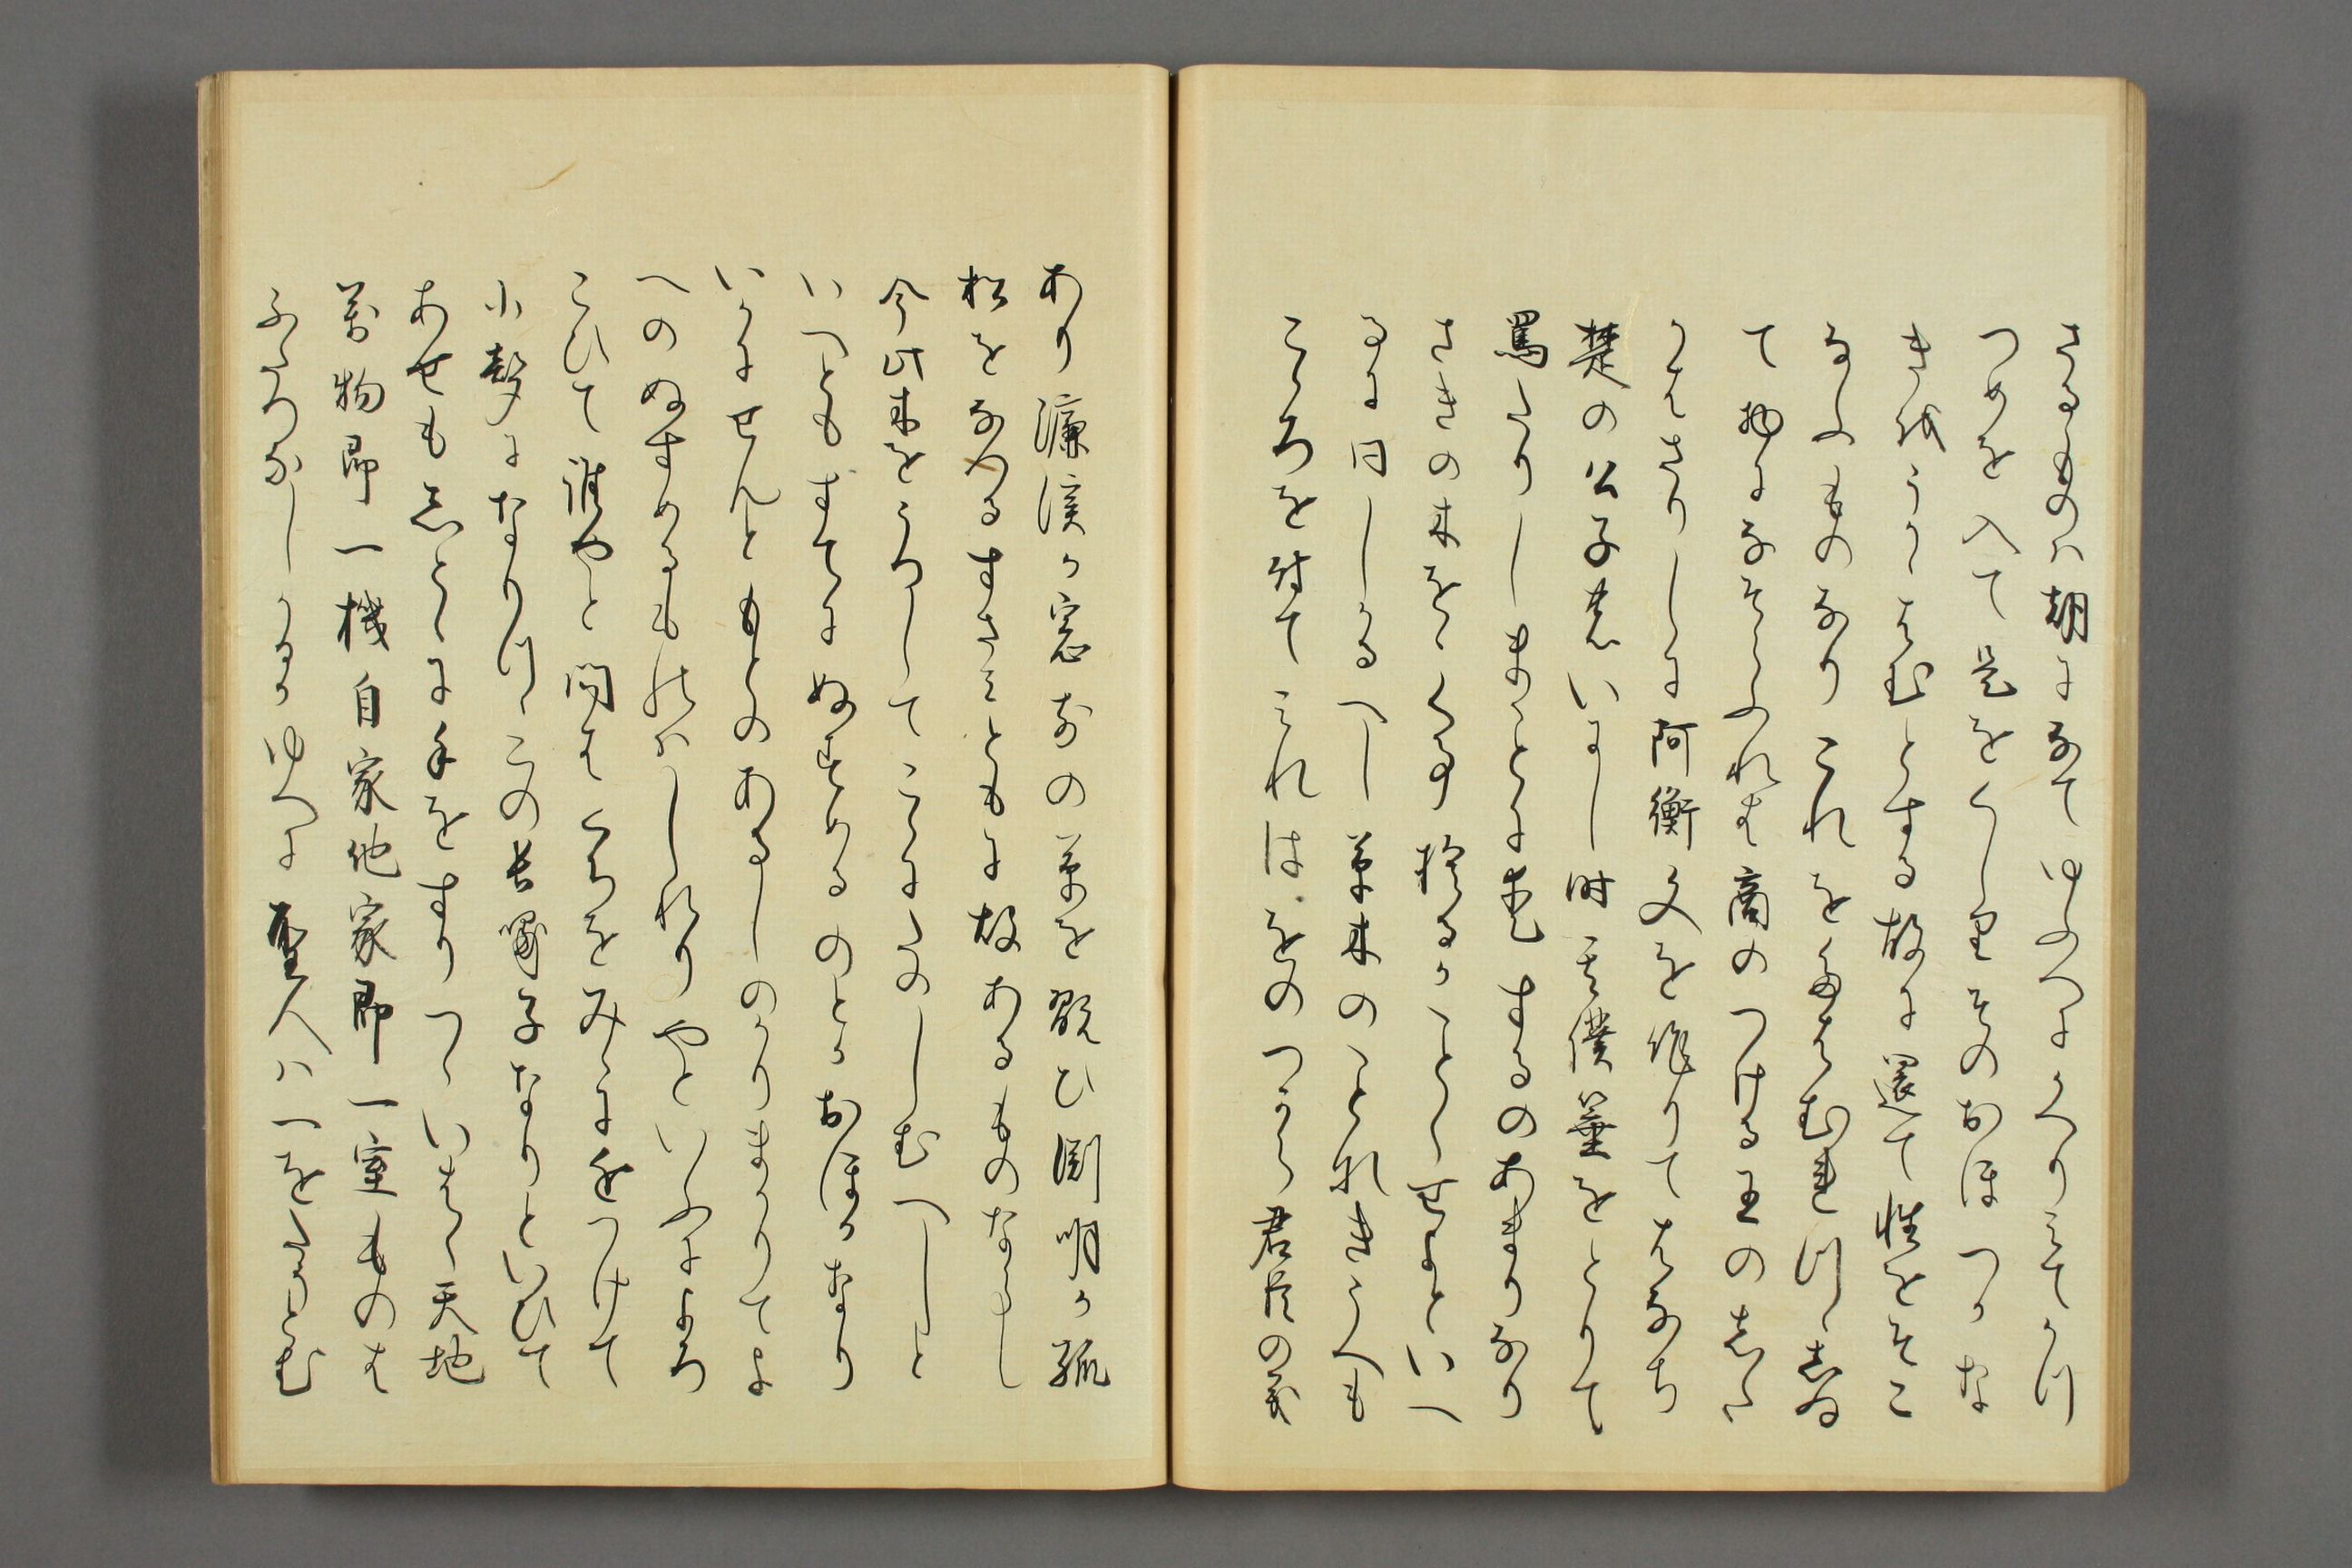 さるものハ朝にみてゆふへにかへりみてかつ
つめを入て是をくしりそのおほつかな
きをうかゝはむとする故に還て性をそこ
なふものなりこれをたはむれつゝしゐ
て物になそらふれは商のつける王のしら
かはさりしに阿衡文を作りてはなち
楚の公子しいまし時其僕箠をとりて
罵たりしまことに木すゑのあまりなり
さきの木をくる事捨るかことくせよといへ
るに同しかるへし草木のことわきうへも
こゝろを付てみれはをのつから君臣の義
あり濂渓か窓前の草を翫ひ渕明か孤
松をなつるすさみともに故あるものならし
今此木をうつしてこゝにたのしむへしと
いつともすてにぬすめるのとかおほかなり
いかにせんともとのあるしのかりまかりてよ
へのぬすめるものハしれりやといふによろ
こひて誰やと問はくちをみゝに近つけて
小聲になりつゝこの長嘯子なりといひて
あせもしとゝに手をすりつゝいはく天地
萬物即一機自家他家即一室ものは
ふたつなしかるかゆへに聖人ハ一をたうとむ